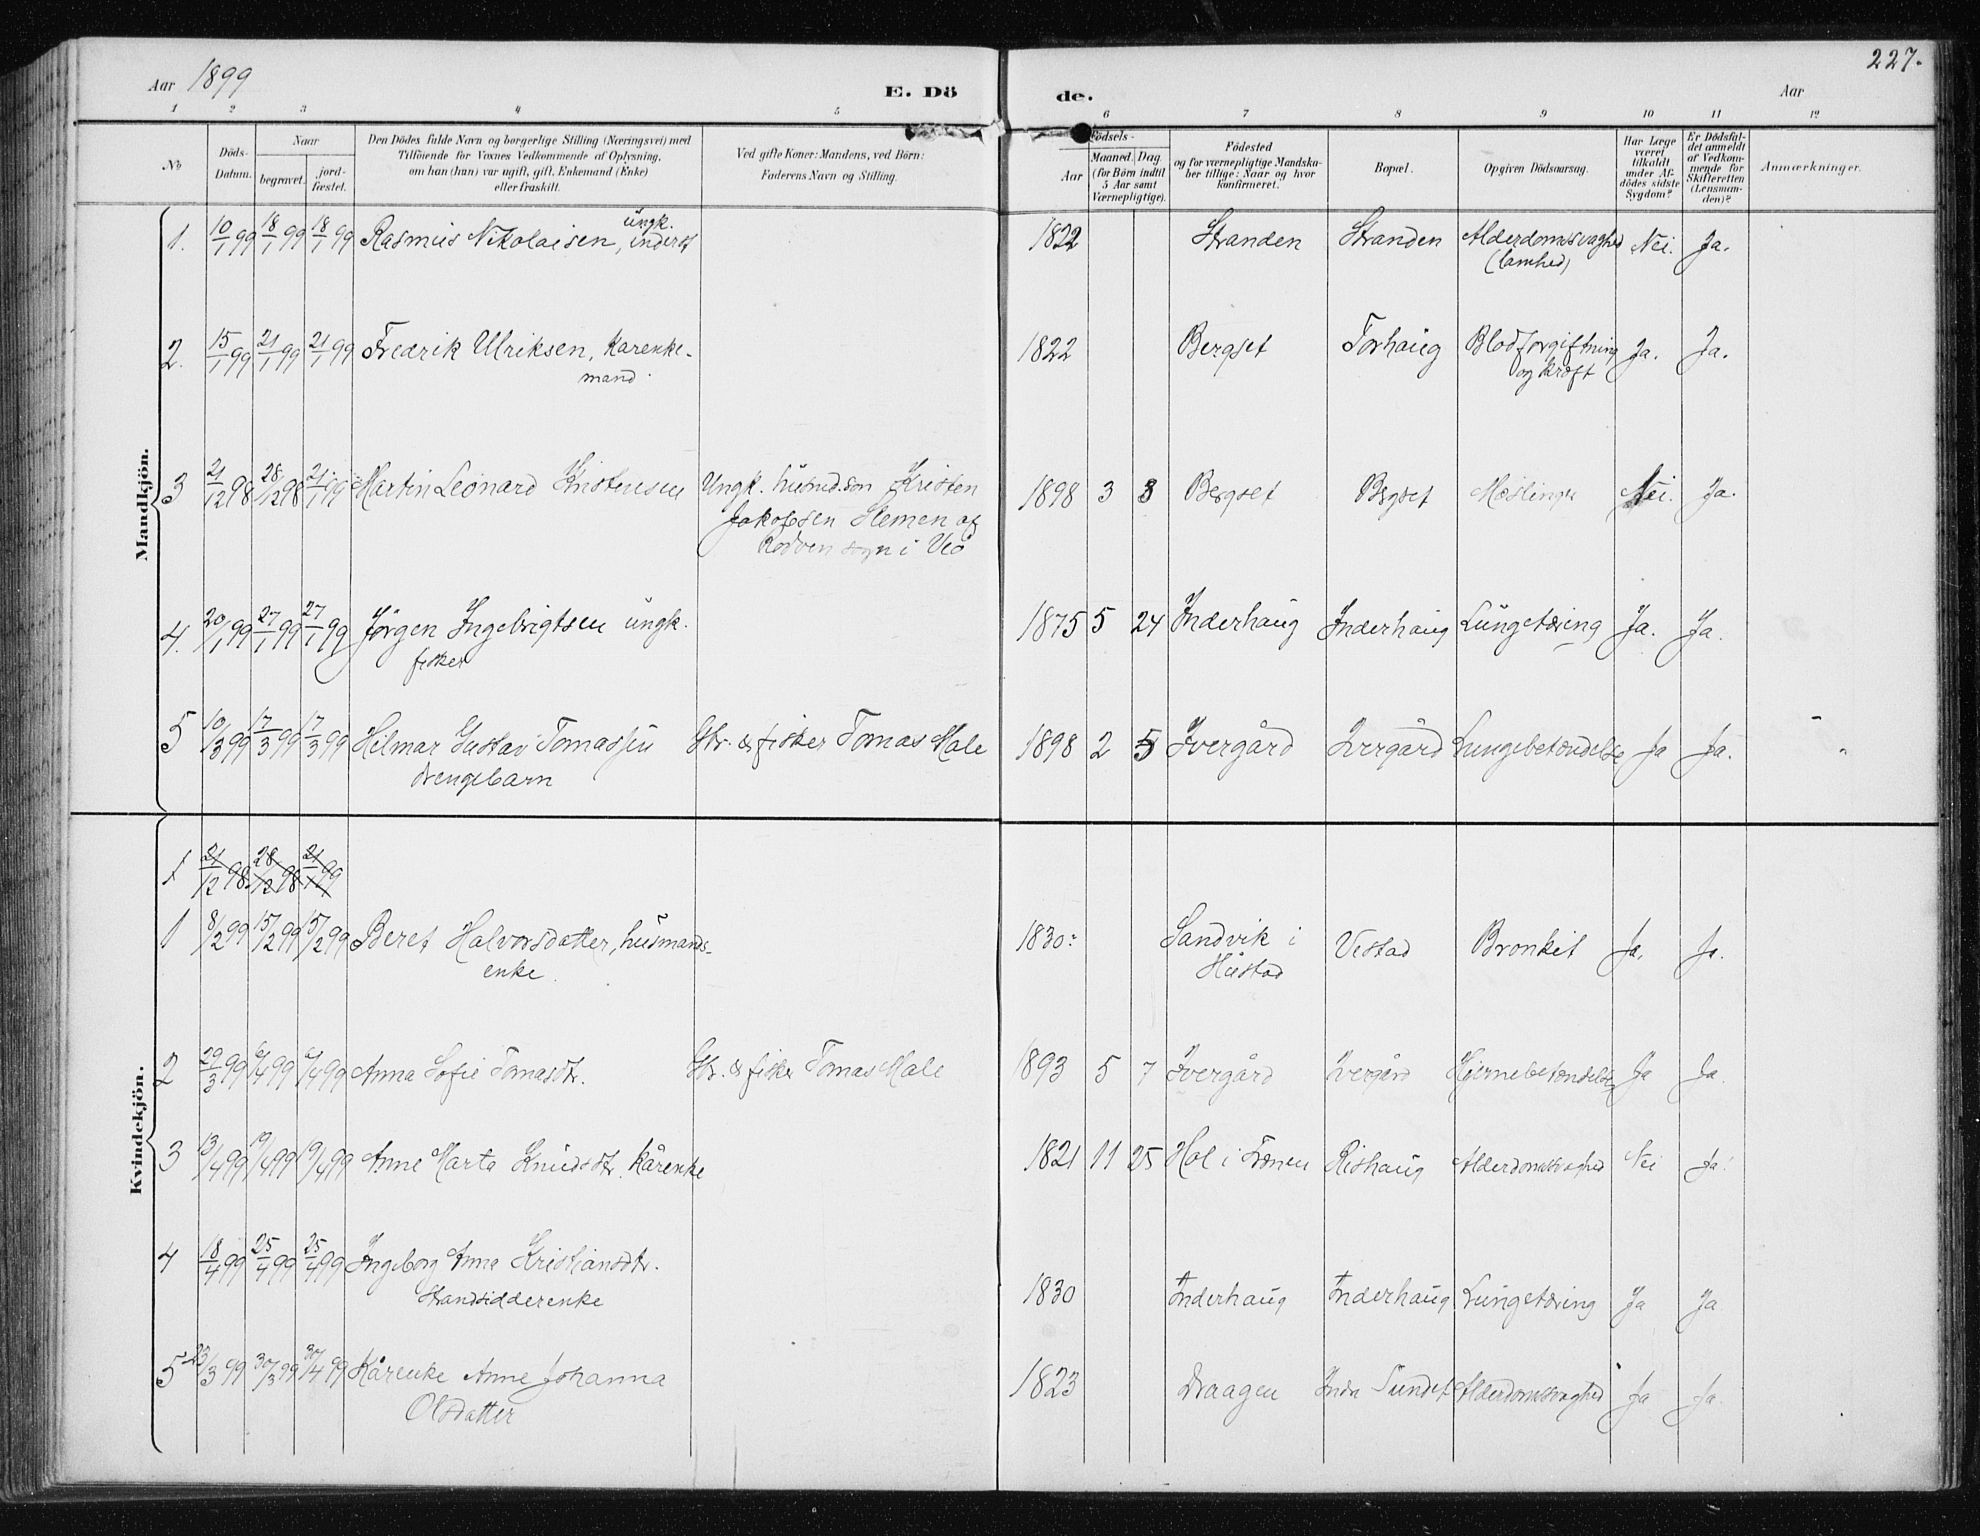 Aar 1899
E. Dö
de.
Aar
227.
1 2 3 4 5 6 7 8 9 10 11 12
No
Döds-
Datum.
Naar
begravet.
jord-
fæstet.
Den Dödes fulde Navn og borgerlige Stilling (Næringsvei) med
Tilföiende for Voxnes Vedkommende af Oplysning,
om han (hun) var ugift, gift, Enkemand (Enke)
eller fraskilt.
Ved gifte Koner: Mandens, ved Börn:
Faderens Navn og Stilling.
Födsels-
Aar
Maaned. Dag.
(for Börn indtil
5 Aar samt
Værnepligtige).
Födested
og for værnepligtige Mandska-
ber tillige: Naar og hvor
konfirmeret.
Bopæl.
Opgiven Dödsaarsag.
Har Læge
været
tilkaldt
under Af-
dödes sidste
Sygdom?
Er Dödsfal-
det anmeldt
af Vedkom-
mende for
Skifteretten
(Lensman-
den)?
Anmærkninger.
Mandkjön.
1. 10/1 99 18/1 99 18/1 99 Rasmus Nikolaisen, ungk. inderst 1822 Stranden Stranden Alderdomssvaghed Nei. Ja.
(lamhed)
2. 15/1 99 21/1 99 21/1 99 Fredrik Ulriksen, Karenke- 1822 Bergset Torhaug Blodforgiftning Ja. Ja.
mand. og kræft
3 21/12 98 28/12 98 21/1 99 Martin Leonard Kristensen Ungk. husmd.søn Kristen 1898 3 3 Bergset Bergset Mæslinger Nei. Ja.
Jakobsen Slemen af
Rødven sogn i Veø
4. 20/1 99 27/1 99 27/1 99 Jørgen Ingebrigtsen ungk. 1875 5 24 Inderhaug Inderhaug Lungetæring Ja. Ja.
fisker
5 10/3 99 17/3 99 17/3 99 Hilmar Gustav Tomassen Str. & fisker Tomas Male 1898 2 5 Ivergård Ivergård Lungebetændelse Ja Ja.
drengebarn
Kvindekjön.
1 21/12 98 28/12 98 21/1 99
1 8/2 99 15/2 99 15/2 99 Beret Halvorsdatter, husmands- 1830 Sandvik i Vestad Bronkit Ja. Ja.
enke. Hustad
2 29/3 99 6/4 99 6/4 99 Anna Sofie Tomasdtr. Str. & fisker Tomas Male 1893 5 7 Ivergård Ivergård Hjernebetændelse Ja Ja.
3 13/4 99 19/4 99 19/4 99 Anne Marta Knudsdtr. Kårenke 1821 11 25 Hol i Frænen Rishaug Alderdomssvaghed Nei Ja.
4 18/4 99 25/4 99 25/4 99 Ingeborg Anna Kristiansdtr.
Strandsidderenke 1830 Inderhaug Inderhaug Lungetæring Ja Ja
5 23/3 99 30/3 99 30/4 99 Kårenke Anne Johanna 1823 Draagen Indre Sundet Alderdomssvaghed Ja Ja.
Olsdatter